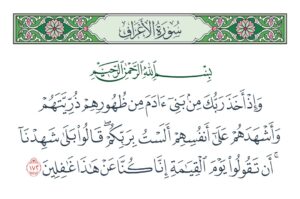 سُورَةُ الأَعْرَافِ
بِسْمِ اللَّهِ الرَّحْمَٰنِ الرَّحِيمِ
وَإِذْ أَخَذَ رَبُّكَ مِنۢ بَنِىٓ ءَادَمَ مِن ظُهُورِهِمْ ذُرِّيَّتَهُمْ
وَأَشْهَدَهُمْ عَلَىٰٓ أَنفُسِهِمْ أَلَسْتُ بِرَبِّكُمْ ۖ قَالُوا۟ بَلَىٰ ۛ شَهِدْنَآ
ۛ أَن تَقُولُوا۟ يَوْمَ ٱلْقِيَٰمَةِ إِنَّا كُنَّا عَنْ هَٰذَا غَٰفِلِينَ ١٧٢